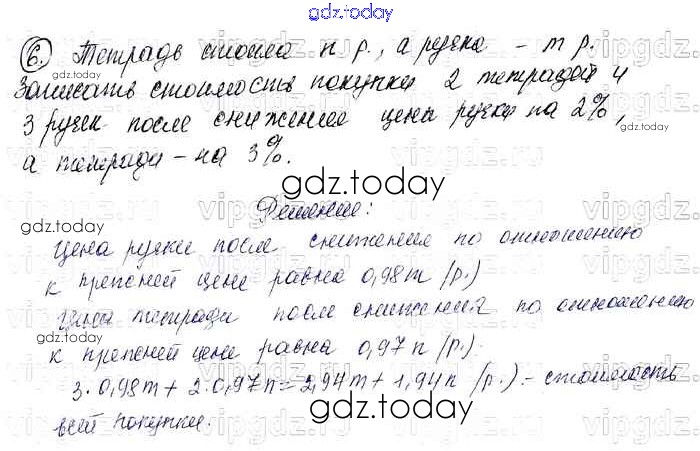 gdz.today
6. Тетрадь стоила n р., а ручка – m р.
Записать стоимость покупки 2 тетрадей и
3 ручек после снижения цены ручки на 2%,
а тетради – на 3%.
gdz.today
Решение:
Цена ручки после снижения по отношению
к прежней цене равна 0,98m (р.)
Цена тетради после снижения по отношению
к прежней цене равна 0,97n (р.).
3·0,98m + 2·0,97n = 2,94m + 1,94n (р.) – стоимость
всей покупки.
gdz.today